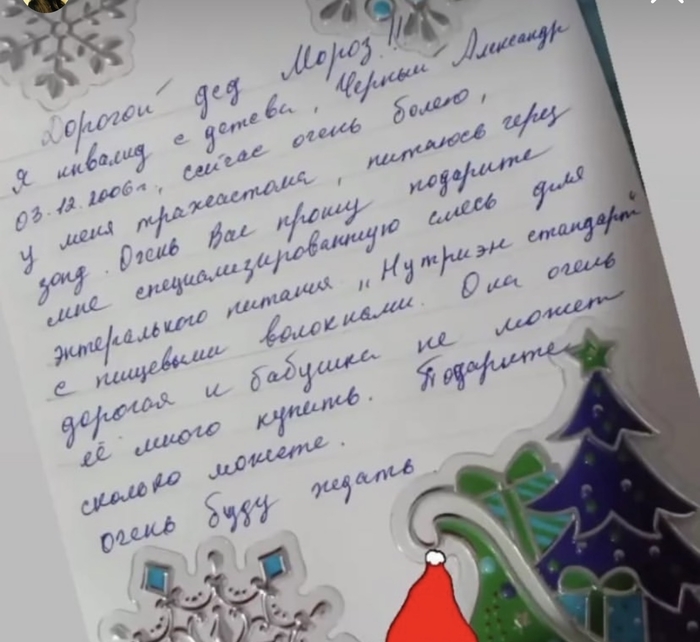 Дорогой дед Мороз!!
Я инвалид с детсва, Черный Александр
03.12.2006г, сейчас очень болею,
у меня трахеастома, питаюсь через
зонд. Очень Вас прошу подарите
мне специализированную смесь для
энтерального питания „Нутриэн стандарт"
с пищевыми волокнами. Она очень
дорогая и бабушка не может
её много купить. Подарите
сколько можете.
Очень буду ждать